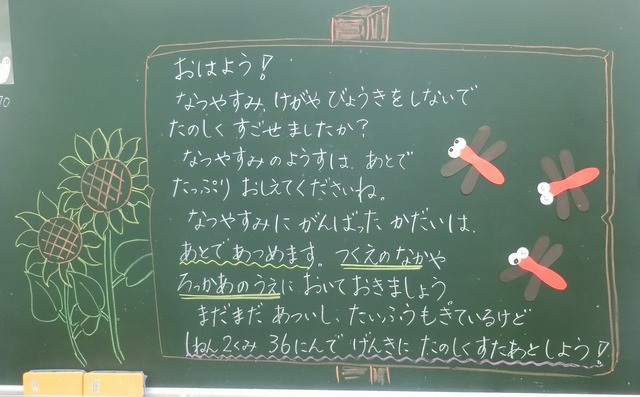 おはよう!
なつやすみ、けがや びょうきをしないで
たのしく すごせましたか?
なつやすみのようすは、あとで
たっぷり おしえてくださいね。
なつやすみに がんばった かだいは、
あとであつめます。つくえのなかや
ろっかあのうえに おいておきましょう
まだまだ あついし、たいふうもきているけど
1ねん2くみ 36にんで げんきに たのしくすたあとしよう!